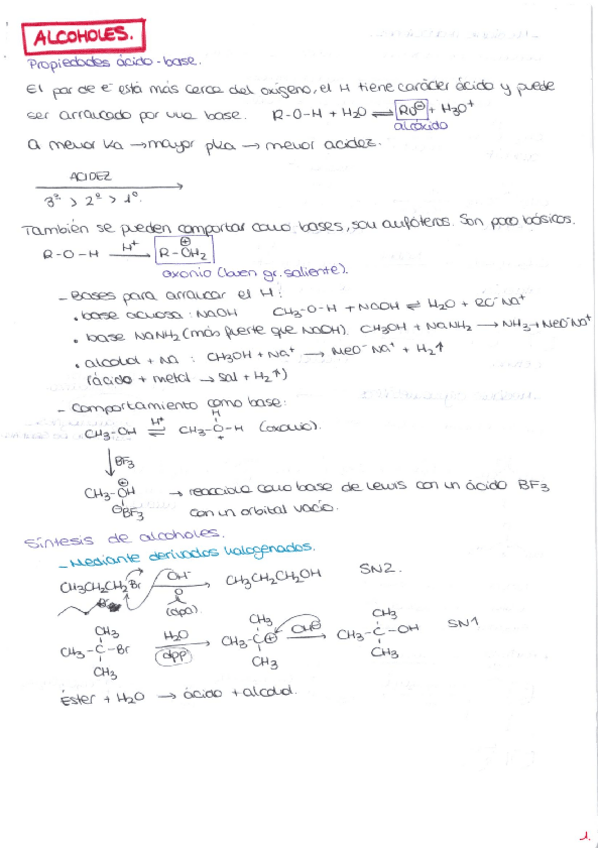 ALCOHOLES.
Propiedades ácido-base.
El par de e⁻ está más cerca del oxígeno, el H tiene carácter ácido y puede
ser arrancado por una base. R-O-H + H₂O ⇌ RO⊖ + H₃O⁺
alcóxido
a menor Ka → mayor pKa → menor acidez.
ACIDEZ
3º > 2º > 1º.
También se pueden comportar como bases, son anfóteros. Son poco básicos.
R-O-H H⁺→ R-OH₂ ⊕
oxonio (buen gr. saliente).
- Bases para arrancar el H:
• base acuosa: NaOH CH₃-O-H + NaOH ⇌ H₂O + RO⁻Na⁺
• base NaNH₂ (más fuerte que NaOH). CH₃OH + NaNH₂ → NH₃ + MeO⁻Na⁺
• alcohol + Na : CH₃OH + Na⁺ → MeO⁻Na⁺ + H₂↑
(ácido + metal → sal + H₂↑)
- Comportamiento como base:
H
CH₃-OH H⁺⇌ CH₃-O-H (oxonio).
+
BF₃
⊕
CH₃-OH → reacciona como base de Lewis con un ácido BF₃
⊖BF₃ con un orbital vacío.
Síntesis de alcoholes.
- Mediante derivados halogenados.
CH₃CH₂CH₂Br OH⁻ → CH₃CH₂CH₂OH SN2.
Br O
(dpa)
CH₃ CH₃ CH₃
CH₃-C-Br H₂O → CH₃-C⊕ OH⊖ → CH₃-C-OH SN1
(dpp)
CH₃ CH₃ CH₃
Éster + H₂O → ácido + alcohol.
1.